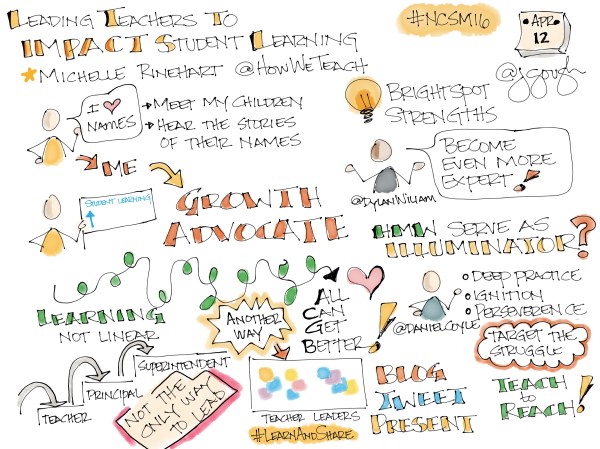 LEADING TEACHERS TO
IMPACT STUDENT LEARNING
MICHELLE RINEHART @HOWWETEACH
#NCSM16
APR
12
@jgough
I ♥
NAMES
MEET MY CHILDREN
HEAR THE STORIES
OF THEIR NAMES
ME
BRIGHTSPOT
STRENGTHS
BECOME
EVEN MORE
EXPERT
@DYLANWILIAM
STUDENT LEARNING
GROWTH
ADVOCATE
HMW SERVE AS
ILLUMINATOR?
LEARNING
NOT LINEAR
ANOTHER
WAY
ALL
CAN
GET
BETTER!
@DANIELCOYLE
DEEP PRACTICE
IGNITION
PERSEVERENCE
TARGET THE
STRUGGLE
TEACHER
PRINCIPAL
SUPERINTENDENT
NOT THE
ONLY WAY
TO LEAD
TEACHER LEADERS
#LEARNANDSHARE
BLOG
TWEET
PRESENT
TEACH
to
REACH!